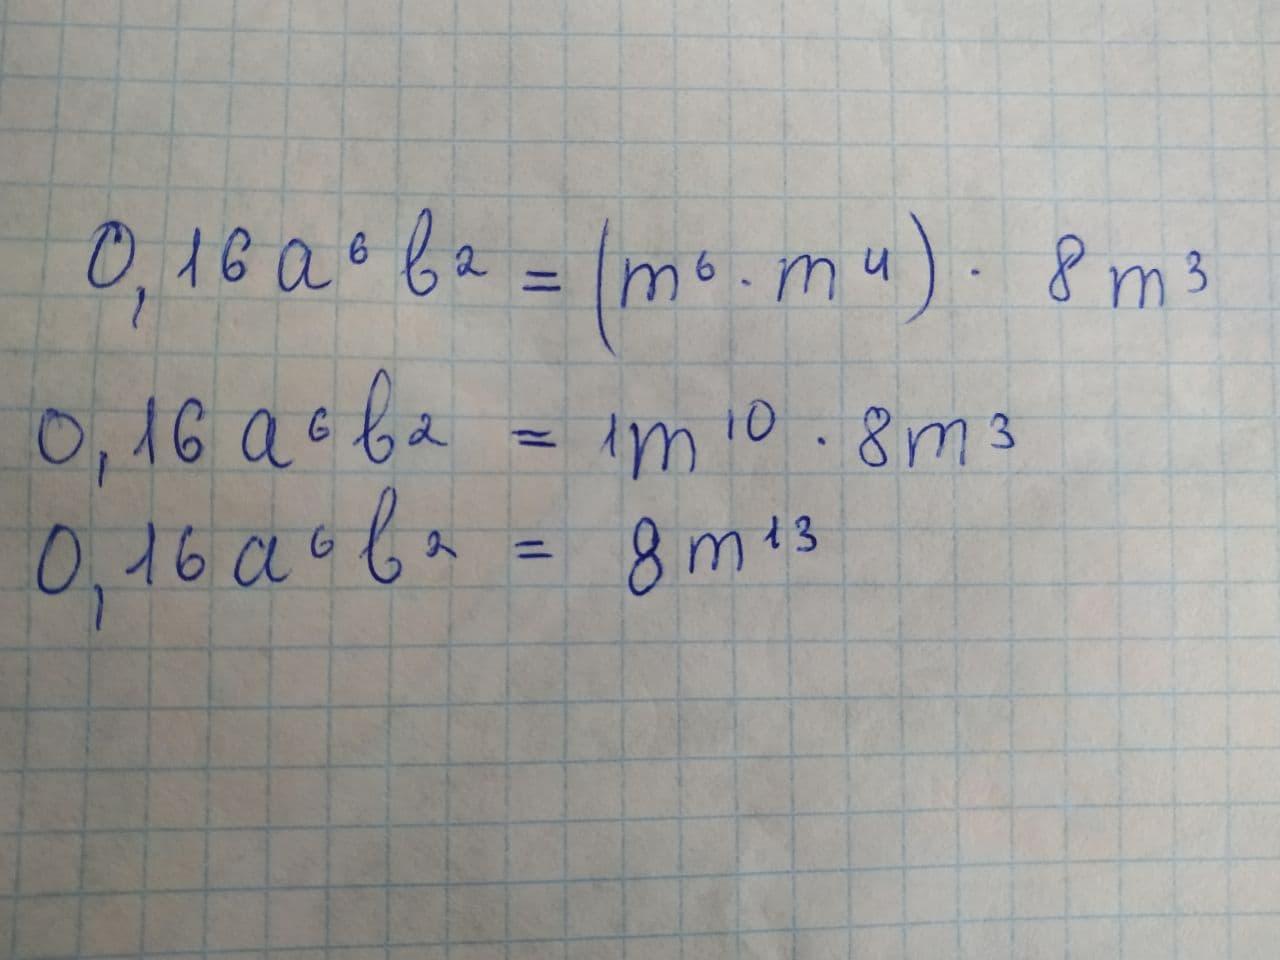 0,16a⁶b² = (m⁶ · m⁴) · 8m³
0,16a⁶b² = 1m¹⁰ · 8m³
0,16a⁶b² = 8m¹³